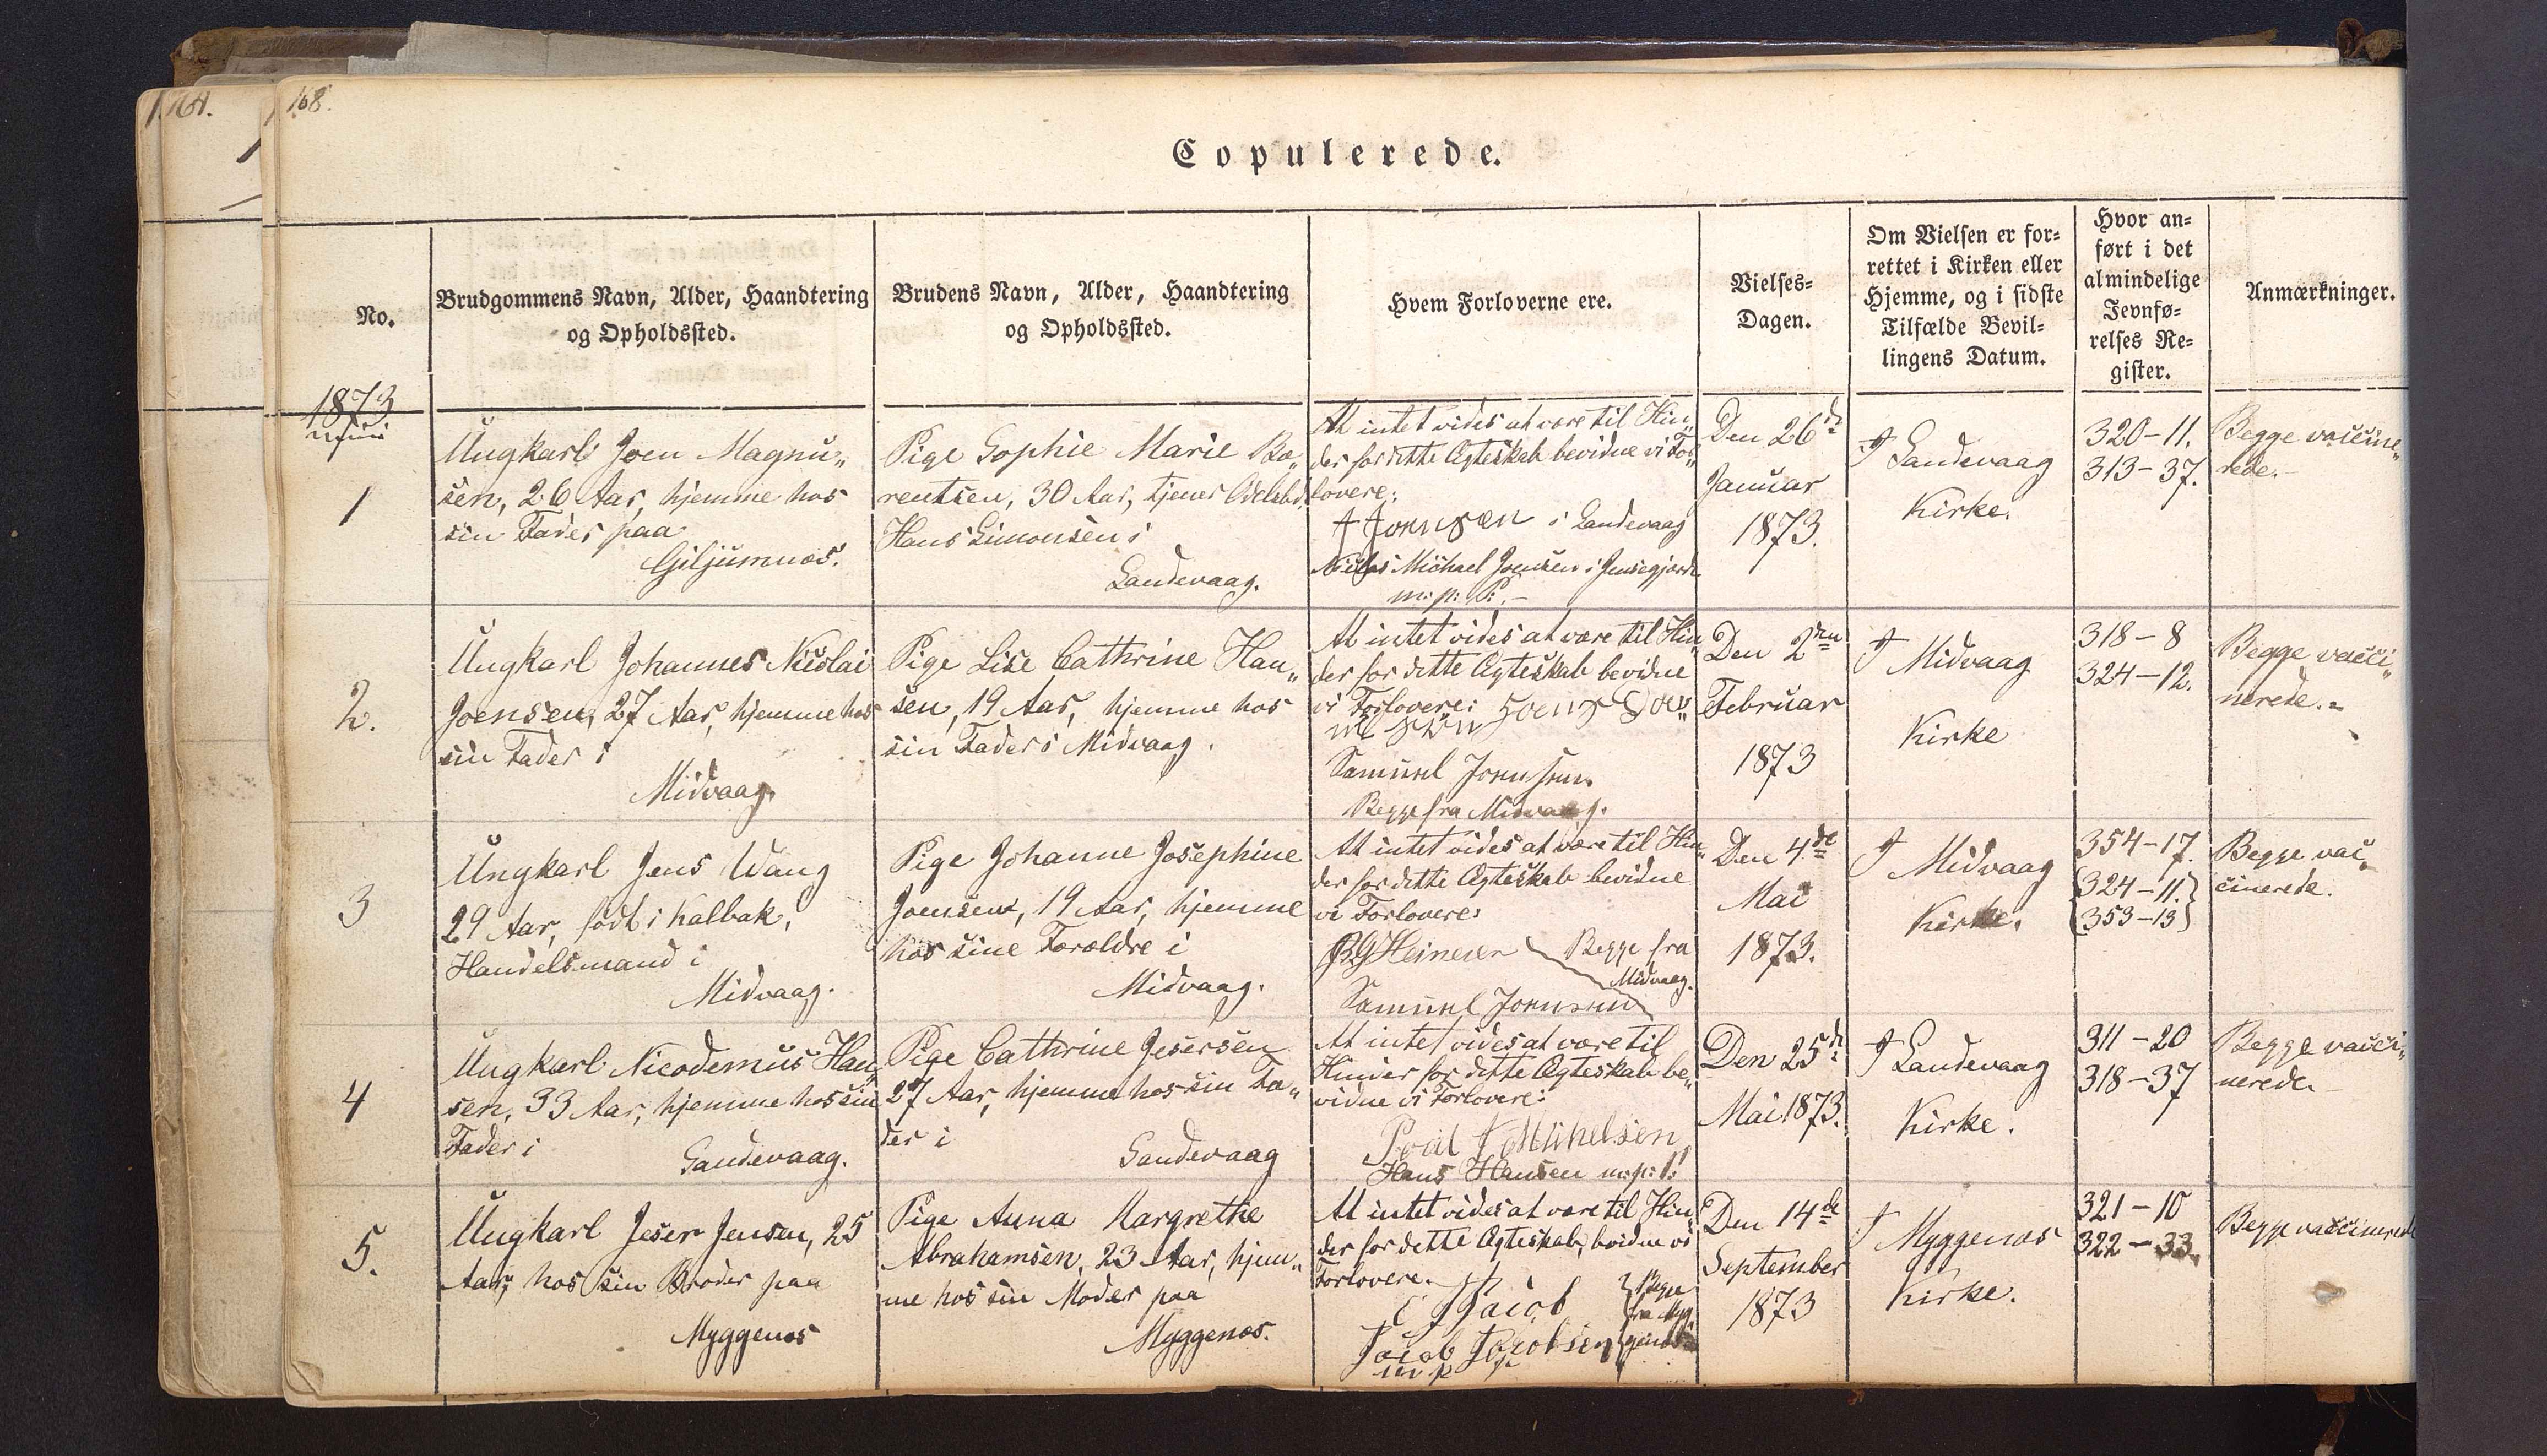 164.
168.
Copulerede.
No.
Brudgommens Navn, Alder, Haandtering
og Opholdssted.
Brudens Navn, Alder, Haandtering
og Opholdssted.
Hvem Forloverne ere.
Vielses-
Dagen.
Om Vielsen er for-
rettet i Kirken eller
Hjemme, og i sidste
Tilfælde Bevil-
lingens Datum.
Hvor an-
ført i det
almindelige
Jevnfø-
relses Re-
gister.
Anmærkninger.
1873
1
Ungkarl Joen Magnu„
sen, 26 Aar, hjemme hos
sin Fader paa
Giljumnæs.
Pige Sophie Marie Bæ„
rentsen, 30 Aar, tjener Odelsbd.
Hans Simonsen i
Sandevaag.
At intet vides at være til Hin„
der for dette Ægteskab bevidne vi For„
lovere:
J Joensen i Sandevaag
Michael Joensen i Jensegjærde
m: p: P:
Den 26de
Januar
1873.
I Sandevaag
Kirke.
320-11.
313-37.
Begge vaccine„
rede.
2.
Ungkarl Johannes Nicolai
Joensen, 27 Aar, hjemme hos
sin Fader i
Midvaag.
Pige Lise Cathrine Han„
sen, 19 Aar, hjemme hos
sin Fader i Midvaag.
At intet vides at være til Hin„
der for dette Ægteskab bevidne
vi Forlovere:
Samuel Joensen
Begge fra Midvaag.
Den 2den
Februar
1873
I Midvaag
Kirke
318-8
324-12.
Begge vacci„
nerede.
3
Ungkarl Jens Wang
29 Aar, født i Kalbak,
Handelsmand i
Midvaag.
Pige Johanne Josephine
Joensen, 19 Aar, hjemme
hos sine Forældre i
Midvaag.
At intet vides at være til Hin„
der for dette Ægteskab bevidne
vi Forlovere:
Heinesen Begge fra
Midvaag.
Samuel Joensen
Den 4de
Mai
1873.
I Midvaag
Kirke.
354-17.
324-11.
353-13
Begge vac„
cinerede.
4
Ungkarl Nicodemus Han„
sen, 33 Aar, hjemme hos sin
Fader i
Sandevaag.
Pige Cathrine Jesersen
27 Aar, hjemme hos sin Fa„
der i
Sandevaag
At intet vides at være til
Hinder for dette Ægteskab be„
vidne vi Forlovere:
Poal J Mikkelsen
Hans Hansen m: p: P:
Den 25de
Mai 1873.
I Sandevaag
Kirke.
311-20
318-37
Begge vacci„
nerede.
5.
Ungkarl Jeser Jensen, 25
Aar, hos sin Broder paa
Myggenæs
Pige Anna Margrethe
Abrahamsen, 23 Aar, hjem„
me hos sin Moder paa
Myggenæs.
At intet vides at være til Hin„
der for dette Ægteskab, bvidne vi
Forlovere.
Jacob
Jacob Jacobsen
Begge
fra Myg„
genæs
Den 14de
September
1873
I Myggenæs
Kirke.
321-10
322-33.
Begge vaccinerede